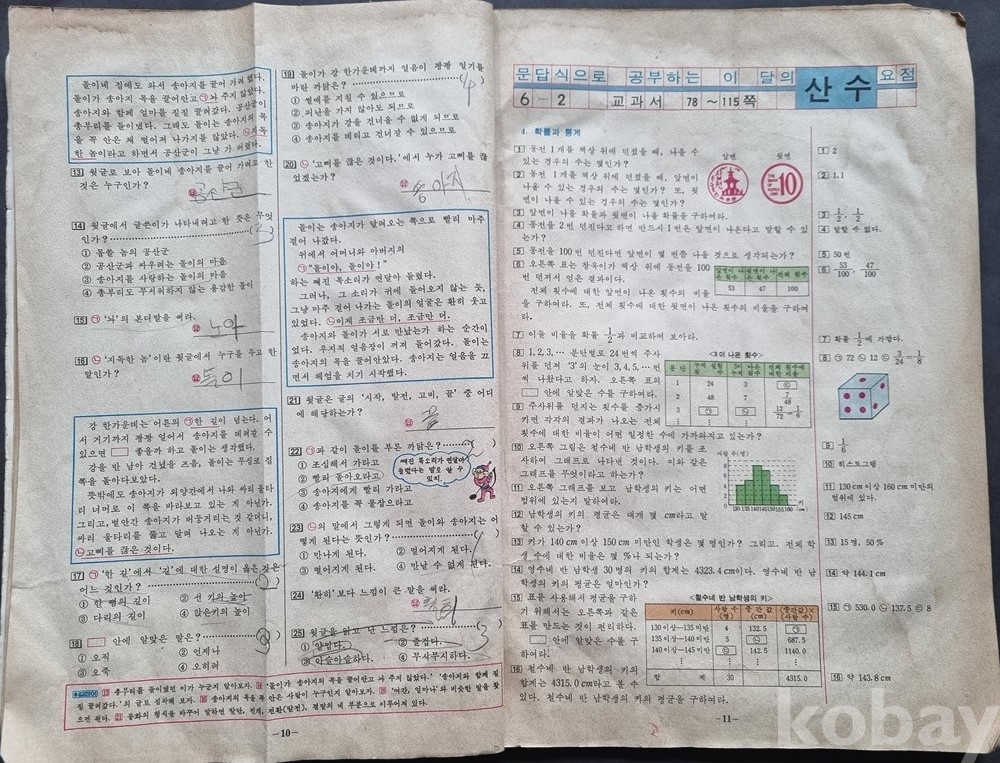 돌이네 집에도 와서 송아지를 끌어 가려했다.
돌이가 송아지 목을 끌어안고 ㉠놔 주지 않았다.
송아지와 함께 얼마를 질질 끌려갔다. 공산군이
총부리를 들이댔다. 그래도 돌이는 송아지의 목
을 꼭 안은 채 떨어져 나가지를 않았다. ㉡지독
한 놈이라고 하면서 공산군이 그냥 가 버렸다.
13 윗글로 보아 돌이네 송아지를 끌어 가려고 한
것은 누구인가?
답 공산군
14 윗글에서 글쓴이가 나타내려고 한 뜻은 무엇
인가? (3)
① 몹쓸 놈의 공산군
② 공산군과 싸우려는 돌이의 마음
③ 송아지를 사랑하는 돌이의 마음
④ 총부리도 무서워하지 않는 용감한 돌이
15 ㉠ '놔'의 본디말을 써라.
답 노아
16 ㉡ '지독한 놈'이란 윗글에서 누구를 두고 한
말인가?
답 돌이
강 한가운데는 어른의 ㉠한 길이 넘는다. 어
서 거기까지 꽝꽝 얼어서 송아지를 데려갈 수
있으면 좋을까 하고 돌이는 생각했다.
강을 반 남아 건넜을 즈음, 돌이는 무심코 집
쪽을 돌아다보았다.
뜻밖에도 송아지가 외양간에서 나와 싸리 울타
리 너머로 이 쪽을 바라보고 있는 게 아닌가.
그리고, 벌안간 송아지가 버둥거리는 것 같더니,
싸리 울타리를 뚫고 달려 나오는 게 아닌가.
㉡고삐를 끊은 것이다.
17 ㉠ '한 길'에서 '길'에 대한 설명이 옳은 것은
어느 것인가? (2)
① 한 뼘의 길이 ② 선 키의 높이
③ 다리의 길이 ④ 앉은키의 높이
18 안에 알맞은 말은? (3)
① 오직 ② 언제나
③ 오죽 ④ 오히려
19 돌이가 강 한가운데까지 얼음이 꽝꽝 얼기를
바란 까닭은? (4)
① 썰매를 지칠 수 있으므로
② 피난을 가지 않아도 되므로
③ 송아지가 강을 건너올 수 없게 되므로
④ 송아지를 데리고 건너갈 수 있으므로
20 ㉡ '고삐를 끊은 것이다.'에서 누가 고삐를 끊
었겠는가?
답 송아지
돌이는 송아지가 달려오는 쪽으로 빨리 마주
걸어 나갔다.
뒤에서 어머니와 아버지의
㉠"돌이야, 돌이야!"
하는 목소리가 연달아 들렸다.
그러나, 그 소리가 귀에 들어오지 않는 듯,
그냥 마주 걸어 나가는 돌이의 얼굴은 환히 웃고
있었다. ㉡이제 조금만 더, 조금만 더.
송아지와 돌이가 서로 만났는가 하는 순간이
었다. 우지직 얼음장이 꺼져 들어갔다. 돌이는
송아지의 목을 끌어안았다. 송아지는 얼음을 끄
면서 헤엄을 치기 시작했다.
21 윗글은 글의 '시작, 발전, 고비, 끝' 중 어디
에 해당하는가?
답 끝
22 ㉠과 같이 돌이를 부른 까닭은? (2)
① 조심해서 가라고
② 빨리 돌아오라고
③ 송아지에게 빨리 가라고
④ 송아지를 꼭 붙잡으라고
빠진 목소리가 연달아
들렸다는 말로 알 수
있지.
23 ㉡의 말에서 그렇게 되면 돌이와 송아지는 어
떻게 된다는 뜻인가? (1)
① 만나게 된다. ② 멀어지게 된다.
③ 떨어지게 된다. ④ 만날 수 없게 된다.
24 '환히' 보다 느낌이 큰 말을 써라.
답 훤히
25 윗글을 읽고 난 느낌은? (3)
① 얄밉다. ② 즐겁다.
③ 아슬아슬하다. ④ 무시무시하다.
－10－
문답식으로 공부하는 이 달의 산수 요점
6－2 교과서 78～115쪽
4. 확률과 통계
1 동전 1개를 책상 위에 던졌을 때, 나올 수
있는 경우의 수는 몇인가?
2 동전 1개를 책상 위에 던졌을 때, 앞면이
나올 수 있는 경우의 수는 몇인가? 또, 뒷
면이 나올 수 있는 경우의 수는 몇인가?
앞면 뒷면
10
3 앞면이 나올 확률과 뒷면이 나올 확률을 구하여라.
4 동전을 2번 던진다고 하면 반드시 1번은 앞면이 나온다고 말할 수 있
는가?
5 동전을 100번 던진다면 앞면이 몇 번쯤 나올 것으로 생각되는가?
6 오른쪽 표는 창욱이가 책상 위에 동전을 100
번 던져서 얻은 결과이다.
전체 횟수에 대한 앞면이 나온 횟수의 비율
을 구하여라. 또, 전체 횟수에 대한 뒷면이 나온 횟수의 비율을 구하여
라.
앞면이 나온 횟수 뒷면이 나온 횟수 전체 횟수
53 47 100
7 이들 비율을 확률 1/2과 비교하여 보아라.
8 1, 2, 3, … 분단별로 24번씩 주사
위를 던져 '3'의 눈이 3, 4, 5, … 번
씩 나왔다고 하자. 오른쪽 표의
안에 알맞은 수를 구하여라.
<3이 나온 횟수>
분단
1 24 3 ㉢
2 48 7 7/48
3 ㉠ ㉡ 12/72=1/6
9 주사위를 던지는 횟수를 증가시
키면 각각의 결과가 나오는 전체
횟수에 대한 비율이 어떤 일정한 수에 가까와지고 있는가?
10 오른쪽 그림은 철수네 반 남학생의 키를 조
사하여 그래프로 나타낸 것이다. 이와 같은
그래프를 무엇이라고 하는가?
11 오른쪽 그래프를 보고 남학생의 키는 어떤
범위에 있는지 말하여라.
12 남학생의 키의 평균은 대개 몇 cm라고 말
할 수 있는가?
사람 수(명)
130 135 140 145 150 155 160 (cm)
13 키가 140 cm 이상 150 cm 미만인 학생은 몇 명인가? 그리고, 전체 학
생 수에 대한 비율은 몇 %나 되는가?
14 영수네 반 남학생 30명의 키의 합계는 4323.4 cm이다. 영수네 반 남
학생의 키의 평균은 얼마인가?
15 표를 사용해서 평균을 구하
기 위해서는 오른쪽과 같은
표를 만드는 것이 편리하다.
안에 알맞은 수를 구
하여라.
<철수네 반 남학생의 키>
키(cm) 사람 수(명) 중간값(cm) (중간값)×(사람 수)
130 이상～135 미만 4 132.5 ㉠
135 이상～140 미만 5 ㉡ 687.5
140 이상～145 미만 ㉢ 142.5 1140.0
⋮ ⋮ ⋮ ⋮
합 계 30 4315.0
16 철수네 반 남학생의 키의
합계는 4315.0 cm라고 볼 수
있다. 철수네 반 남학생의 키의 평균을 구하여라.
1 2
2 1, 1
3 1/2, 1/2
4 말할 수 없다.
5 50번
6 53/100, 47/100
7 확률 1/2에 가깝다.
8 ㉠ 72 ㉡ 12 ㉢ 3/24=1/8
9 1/6
10 히스토그램
11 130 cm 이상 160 cm 미만의
범위에 있다.
12 145 cm
13 15명, 50%
14 약 144.1 cm
15 ㉠ 530.0 ㉡ 137.5 ㉢ 8
16 약 143.8 cm
－11－
kobay